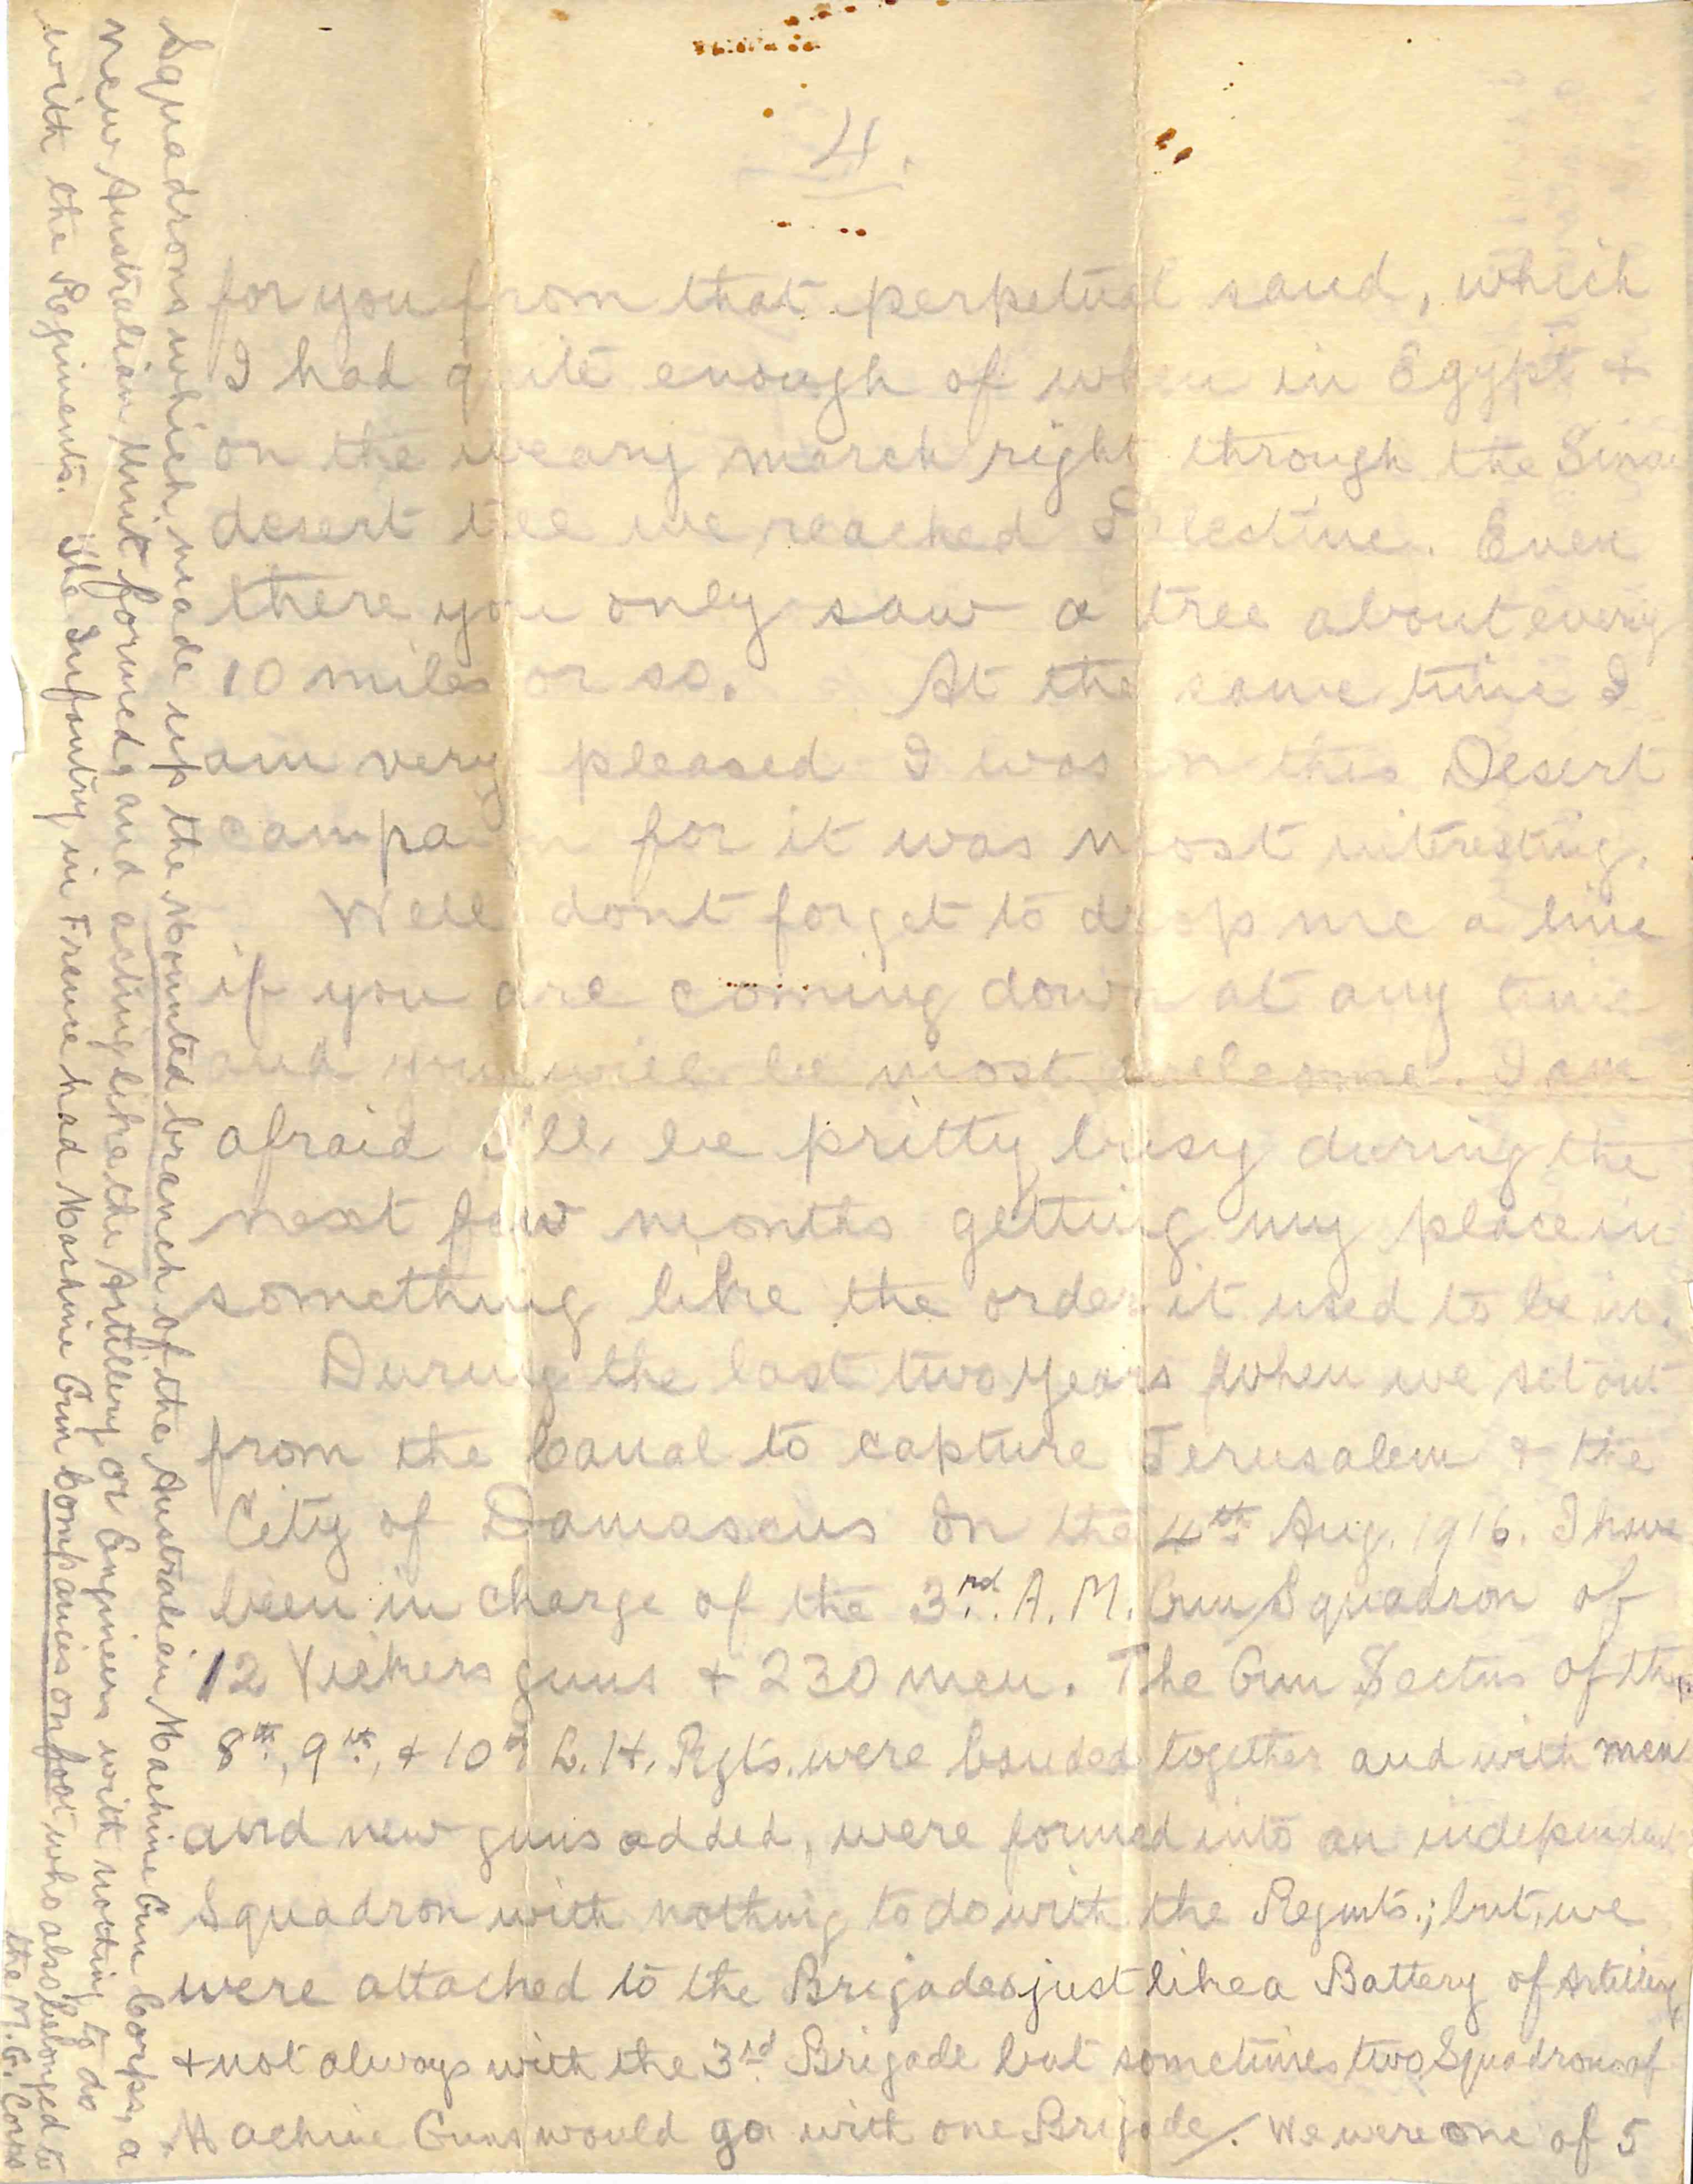 4.
for you from that perpetual sand, which
I had quite enough of when in Egypt +
on the weary march right through the Sinai
desert till we reached Palestine. Even
there you only saw a tree about every
10 miles or so. At the same time I
am very pleased I was in this Desert
campain for it was most interesting.
Well dont forget to drop me a line
if you are coming down at any time
and you will be most welcome. I am
afraid I'll be pritty busy during the
next few months getting my place in
something like the order it used to be in.
During the last two years when we set out
from the Canal to capture Jerusalem + the
City of Damascus on the 4th Aug. 1916. I have
been in charge of the 3rd. A. M. Gun Squadron of
12 Vickers guns + 230 men. The Gun Sectns of the
8th, 9th, + 10th L. H. Rgts. were banded together and with men
and new guns added, were formed into an independent
Squadron with nothing to do with the Regmts.; but, we
were attached to the Brigades just like a Battery of Artillery,
+ not always with the 3rd Brigade but sometimes two Squadrons of
Machine Guns would go with one Brigade. We were one of 5
Squadrons which made up the Mounted branch of the Australian Machine Gun Corps, a
new Australian Unit formed, and acting like the Artillery or Engineers with nothing to do
with the Regiments. The Infantry in France had Machine Gun Companies on foot who also belonged to
the M. G. Corps